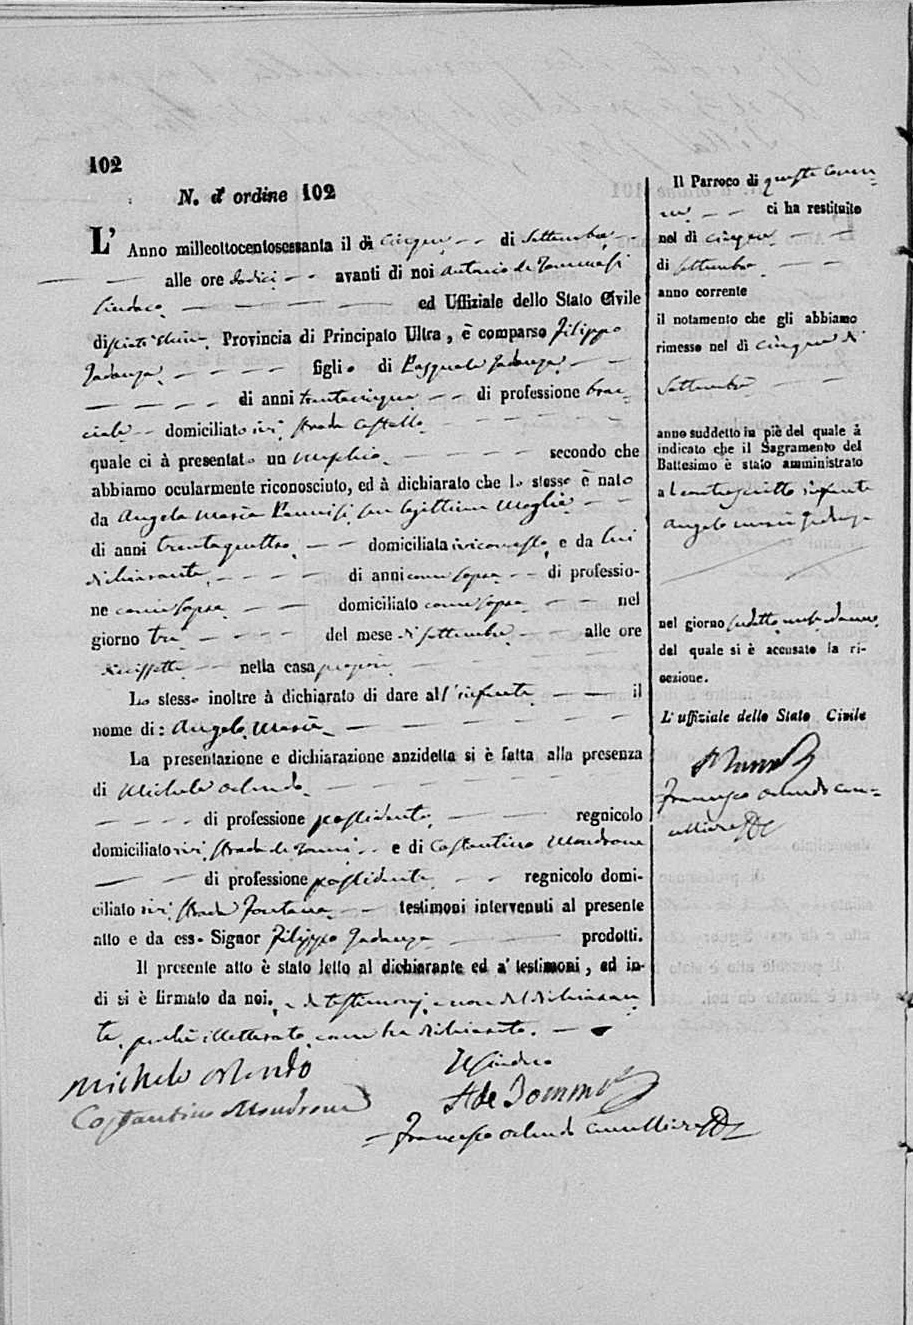 102
N. d' ordine 102
L' Anno milleottocentosessanta il dì cinque di Settembre
alle ore dodici avanti di noi Antonio de Tommasi
Sindaco ed Uffiziale dello Stato Civile
di Provincia di Principato Ultra, è comparso Filippo
Iadanza figlio di Pasquale Iadanza
di anni trentacinque di professione brac-
ciale domiciliato ivi strada Castello
quale ci à presentato un maschio secondo che
abbiamo ocularmente riconosciuto, ed à dichiarato che lo stesso è nato
da Angela Maria sua legittima Moglie
di anni trentaquattro domiciliata ivi con esso, e da lui
dichiarante di anni come sopra di professio-
ne come sopra domiciliato come sopra nel
giorno tre del mese di settembre alle ore
diecissette nella casa propria
Lo stesso inoltre à dichiarato di dare all'infante il
nome di: Angelo Maria
La presentazione e dichiarazione anzidetta si è fatta alla presenza
di Michele Orlando
di professione possidente regnicolo
domiciliato ivi strada e di Costantino Mondrone
di professione possidente regnicolo domi-
ciliato ivi strada Fontana testimoni intervenuti al presente
atto e da ess. Signor Filippo Iadanza prodotti.
Il presente atto è stato letto al dichiarante ed a' testimoni, ed in-
di si è firmato da noi, e da testimonj e non dal dichiaran-
te, perché illetterato, come ha dichiarato.
Michele Orlando
Costantino Mondrone
Il Sindaco
A de Tommasi
Francesco Orlando Cancelliere
Il Parroco di questo Comu-
ne ci ha restituito
nel dì cinque
di settembre
anno corrente
il notamento che gli abbiamo
rimesso nel dì cinque di
Settembre
anno suddetto in piè del quale à
indicato che il Sagramento del
Battesimo è stato amministrato
al controscritto infante
Angelo Maria Iadanza
nel giorno sudetto
del quale si è accusato la ri-
cezione.
L' uffiziale dello Stato Civile
Francesco Orlando can-
celliere